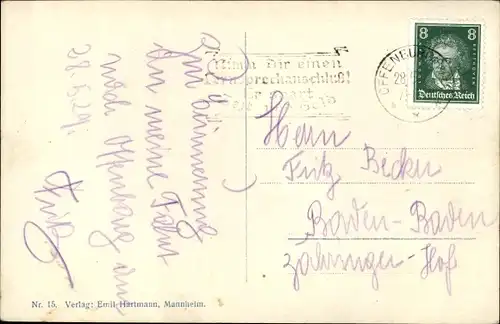 Zur Erinnerung
an meine Fahrt
nach Offenburg am
28.5.29.
Fritz
Nimm dir einen
Fernsprechanschluß!
Er spart
Geld
OFFENBURG
8 8
BEETHOVEN
Deutsches Reich
Herrn
Fritz Becker
Baden-Baden
Zähringer-Hof
Nr. 15. Verlag: Emil Hartmann, Mannheim.